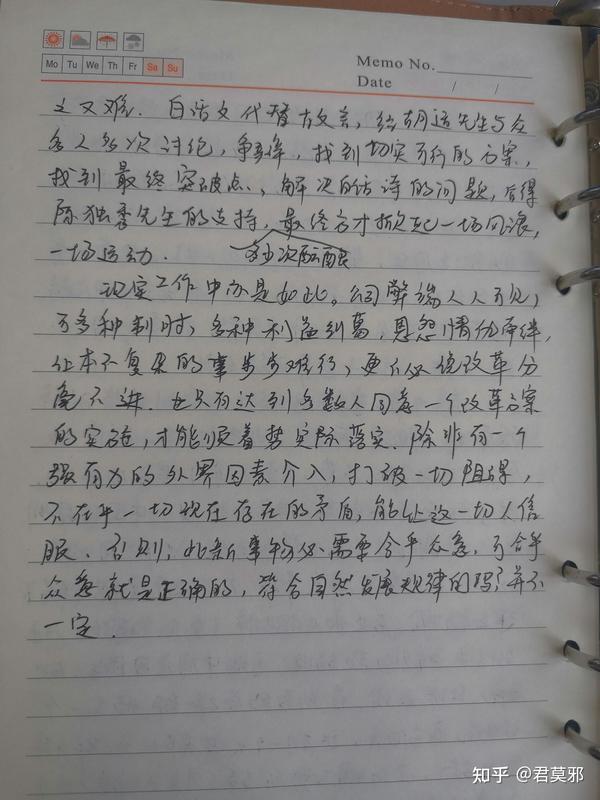 Mo Tu We Th Fr Sa Su
Memo No.
Date / /
之又难。白话文代替古文言,经胡适先生与众
多人多次讨论,争辩,找到切实可行的方案,
找到最终突破点,解决白话诗的问题,后得
陈独秀先生的支持,最终方才掀起一场风浪,
一场运动. 多次酝酿
现实工作中亦是如此。公司弊端人人可见,
可多种制肘,多种利益纠葛,恩怨情仇牵绊,
让本不复杂的事步步难行,更不必说改革分
毫不进. 也只有达到多数人同意一个改革方案
的实施,才能顺着势实际落实. 除非有一个
强有力的外界因素介入,打破一切阻碍,
不在乎一切现在存在的矛盾,能让这一切人信
服. 否则,此新事物必需要合乎众意,可合乎
众意就是正确的,符合自然发展规律的吗?并不
一定.
知乎 @君莫邪